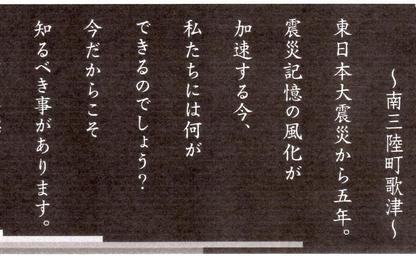 ～南三陸町歌津～
東日本大震災から五年。
震災記憶の風化が
加速する今、
私たちには何が
できるのでしょう？
今だからこそ
知るべき事があります。